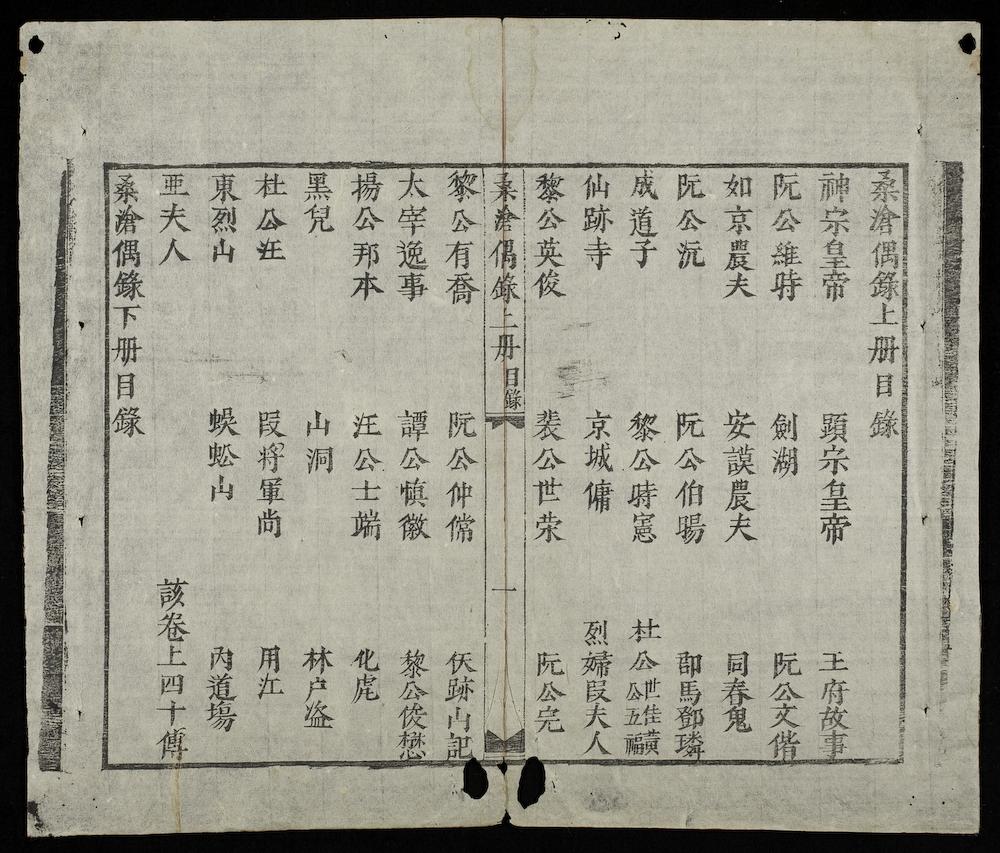 桑滄偶錄上册目錄
神宗皇帝 顕宗皇帝 王府故事
阮公維時 劍湖 阮公文偕
如京農夫 安謨農夫 同春鬼
阮公沆 阮公伯暘 駙馬鄧璘
成道子 黎公時憲 杜公世佳 黄公五福
仙跡寺 京城傭 烈婦叚夫人
黎公英俊 裴公世荣 阮公完
桑滄偶錄上册目錄 一
黎公有喬 阮公仲常 佚跡山記
太宰逸事 譚公慎徽 黎公俊懋
揚公邦本 汪公士端 化虎
黑兒 山洞 林户盗
杜公汪 叚将軍尚 用江
東烈山 蜈蚣山 内道塲
亜夫人 該卷上四十傳
桑滄偶錄下册目錄